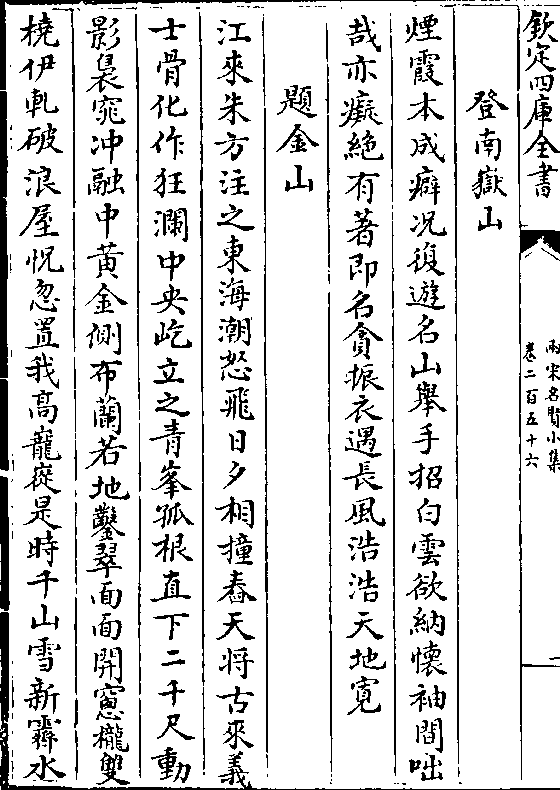 欽定四庫全書
兩宋名賢小集
卷二百五十六
登南嶽山
煙霞本成癖况復遊名山舉手招白雲欲納懷袖間咄
哉亦癡絶有著即名貪振衣遇長風浩浩天地寛
題金山
江來朱方注之東海潮怒飛日夕相撞舂天将古來義
士骨化作狂瀾中央屹立之青峯孤根直下二千尺動
影裊窕冲融中黄金側布蘭若地鑿翠面面開窻櫳雙
橈伊軋破浪屋怳忽置我髙巃嵷是時千山雪新霽水